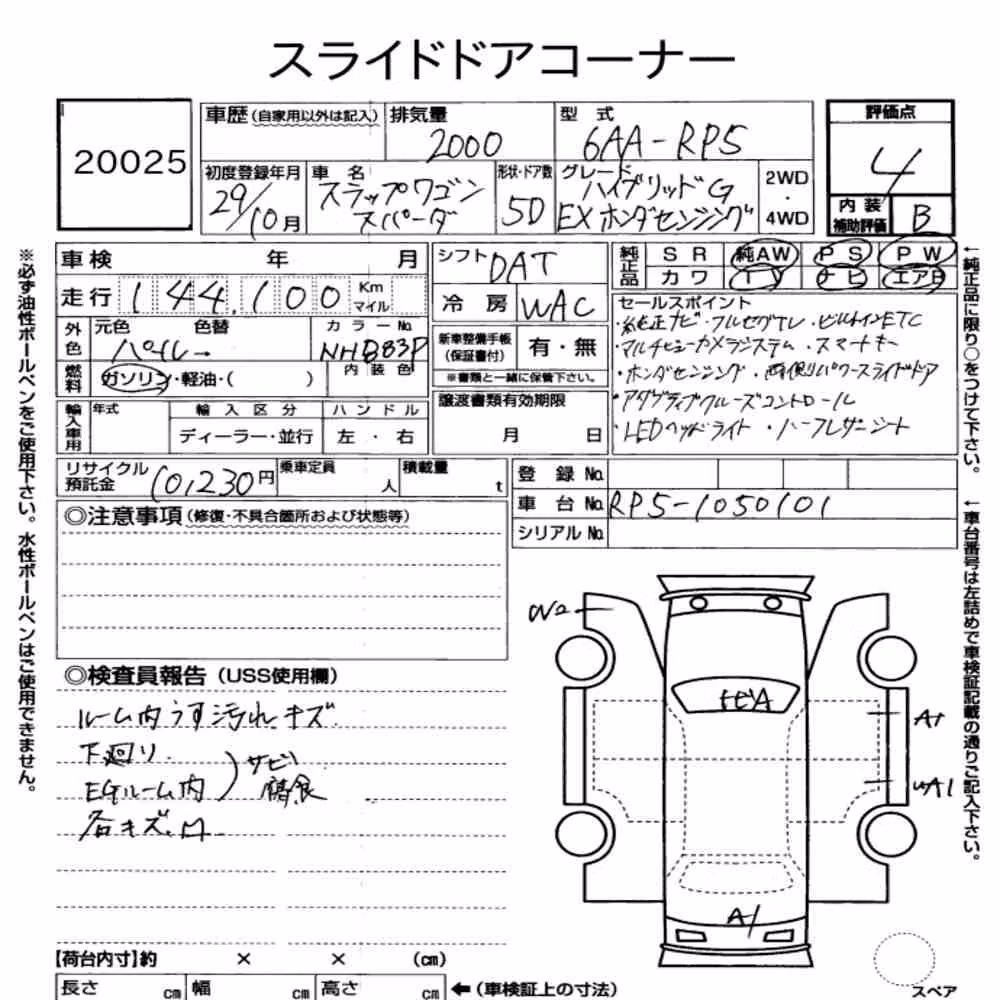 スライドドアコーナー
20025
車歴(自家用以外は記入)
排気量
2000
型 式
6AA-RP5
評価点
4
初度登録年月
29/10月
車 名
スラップワゴン
スパーダ
形状・ドア数
5D
グレード
ハイブリッドG
EXホンダセンシング
2WD
・
4WD
内 装
補助評価
B
車検 年 月
シフト
DAT
純正品
S R 純AW P S P W
カワ T V ナビ エアB
走行 144,100 Km
マイル
冷 房 WAC
セールスポイント
・純正ナビ・フルセグTV・ビルトインETC
・マルチビューカメラシステム・スマートキー
・ホンダセンシング・両側パワースライドドア
・アダプティブクルーズコントロール
・LEDヘッドライト・ハーフレザーシート
外色
元色 色替
パール
カラーNo.
NH883P
新車整備手帳
(保証書付)
有・無
※書類と一緒に保管下さい。
燃料
ガソリン・軽油・( )
内 装 色
輸入車用
年式
輸 入 区 分
ハ ン ド ル
ディーラー・並行
左 ・ 右
譲渡書類有効期限
月 日
リサイクル
預託金
10,230円
乗車定員
人
積載量
t
登 録 No.
車 台 No. RP5-1050101
シリアル No.
◎注意事項(修復・不具合箇所および状態等)
◎検査員報告(USS使用欄)
ルーム内うす汚れ、キズ
下廻り
EGルーム内
サビ
腐食
各キズ、凹
W2
トビA
A1
UA1
A1
スペア
【荷台内寸】約 × × (cm)
長さ cm 幅 cm 高さ cm
←(車検証上の寸法)
※必ず油性ボールペンをご使用下さい。水性ボールペンはご使用できません。
←純正品に限り○をつけて下さい。
←車台番号は左詰めで車検証記載の通りご記入下さい。